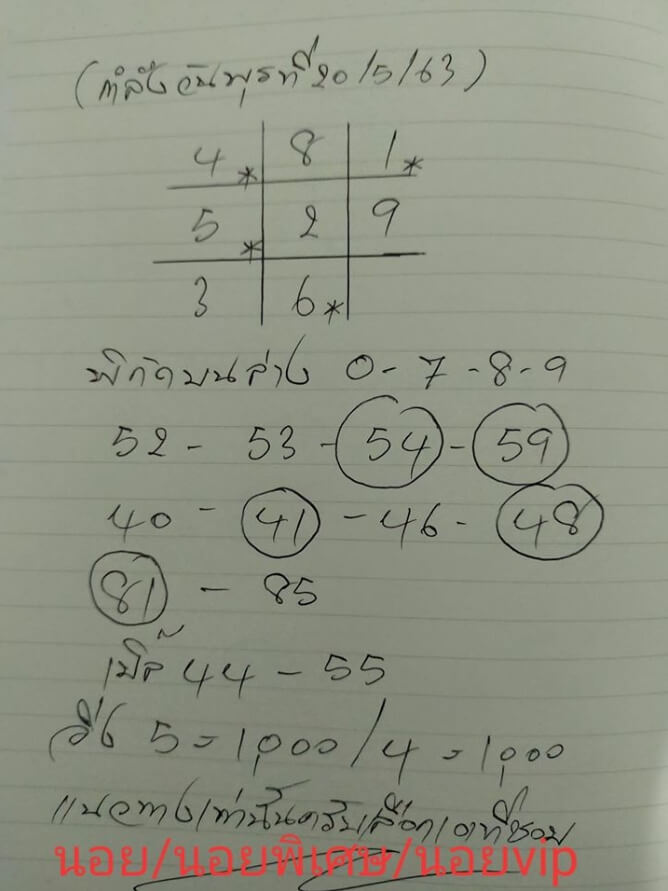 (กำลังวันพุธที่ 20/5/63)
4* 8 1*
5* 2 9
3 6*
พิกัดบนล่าง 0-7-8-9
52 - 53 - 54 - 59
40 - 41 - 46 - 48
81 - 85
เบิ้ล 44 - 55
วิ่ง 5 = 1,000/4 = 1,000
แนวทางเท่านั้นครับเลือกเอาที่ชอบ
นอย/นอยพิเศษ/นอยvip